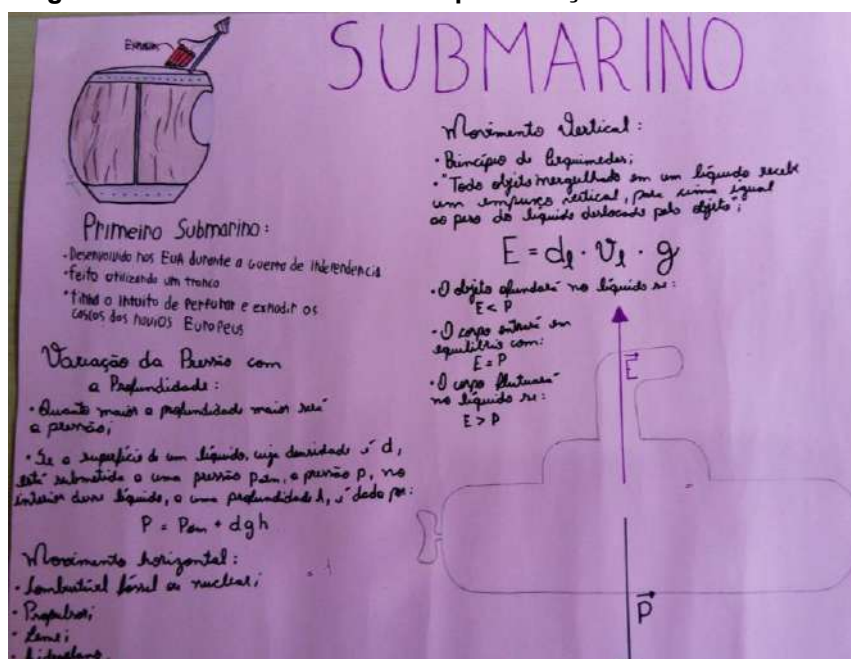 SUBMARINO
EXPLOSIVOS
Primeiro Submarino:
• Desenvolvido nos EUA durante a Guerra de Independencia
• feito utilizando um tronco
• tinha o intuito de perfurar e explodir os
cascos dos navios Europeus
Variação da Pressão com
a Profundidade:
• Quanto maior a profundidade maior será
a pressão;
• Se a superfície de um líquido, cuja densidade é d,
está submetida a uma pressão Patm, a pressão p, no
interior desse líquido, a uma profundidade h, é dado por:
P = Patm + dgh
Movimento horizontal:
• Combustível fóssil ou nuclear;
• Propulsor;
• Leme;
Movimento Vertical:
• Princípio de Arquimedes;
• "Todo objeto mergulhado em um líquido recebe
um empuxo vertical, para cima igual
ao peso do líquido deslocado pelo objeto";
E = dl . Vl . g
• O objeto afundará no líquido se:
E < P
• O corpo entrará em
equilíbrio com:
E = P
• O corpo flutuará
no líquido se:
E > P
E
P